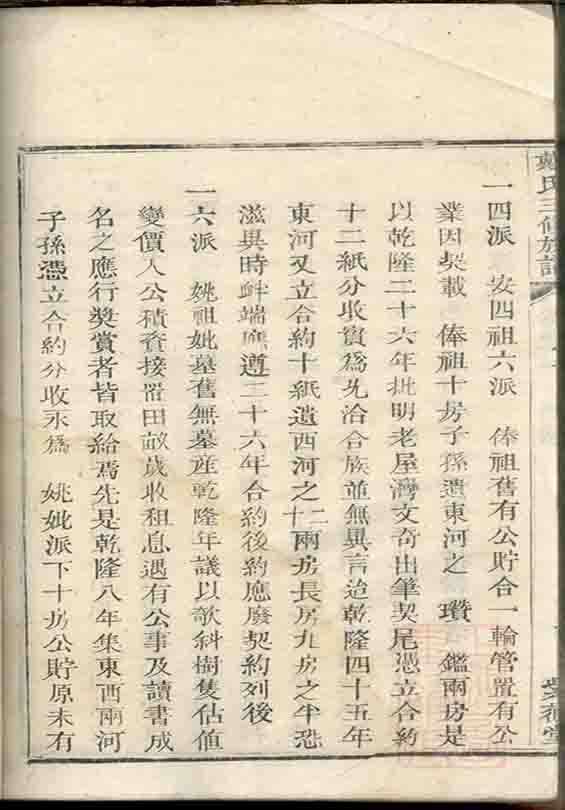 戴氏三修族譜
一四派　安四祖六派　俸祖舊有公貯合一輪管置有公
業因契載　俸祖十房子孫遺東河之　瓚　鑑兩房是
以乾隆二十六年批明老屋灣文奇出筆契尾憑立合約
十二紙分收實為允洽合族並無異言迨乾隆四十五年
東河又立合約十紙遺西河之十二兩房長房九房之半恐
滋異時衅端應遵三十六年合約後約應廢契約列後
一六派　姚祖妣墓舊無墓產乾隆年議以欹斜樹隻估值
變價入公積查接置田畝歲收租息遇有公事及讀書成
名之應行奬賞者皆取給焉先是乾隆八年集東西兩河
子孫憑立合約分收永為　姚妣派下十房公貯原未有